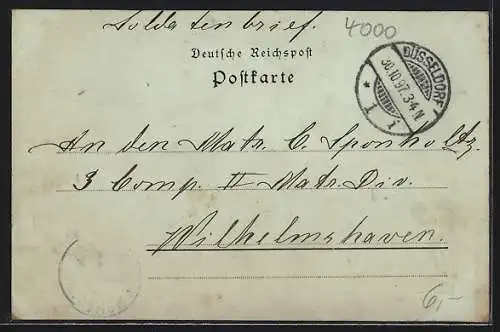 Soldatenbrief.
4000
Deutsche Reichspost
Postkarte
DÜSSELDORF
30.10.97.3-4N
* 1 r *
An den Matr. C. Sponholtz
3 Comp. II Matr. Div.
Wilhelmshaven.
6,-